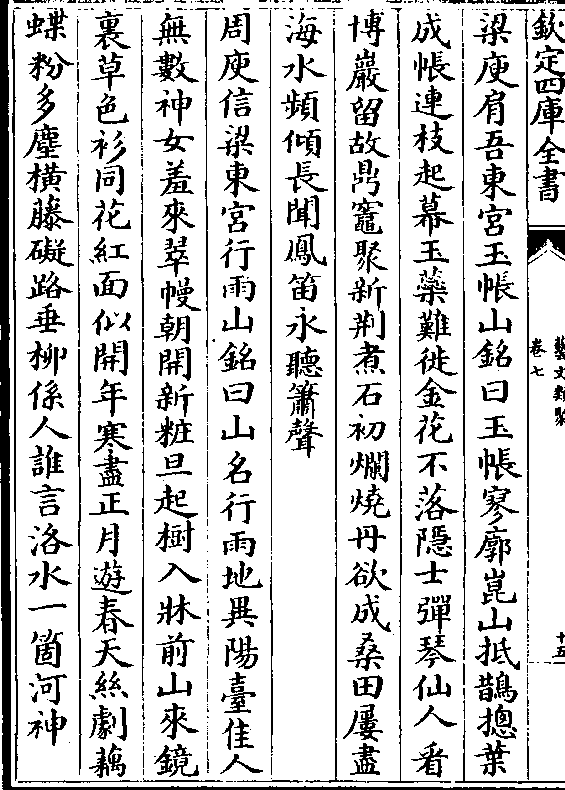 欽定四庫全書
藝文類聚
卷七
十五
梁庾肩吾東宮玉帳山銘曰玉帳寥廓崑山抵鵲摠葉
成帳連枝起幕玉蘂難徙金花不落隱士彈琴仙人看
博巖留故鼎竈聚新荆煮石初爛燒丹欲成桑田屢盡
海水頻傾長聞鳳笛永聽簫聲
周庾信梁東宮行雨山銘曰山名行雨地異陽臺佳人
無數神女羞來翠幔朝開新粧旦起樹入牀前山來鏡
裏草色衫同花紅面似開年寒盡正月遊春天絲劇藕
蝶粉多塵橫藤礙路垂柳係人誰言洛水一箇河神